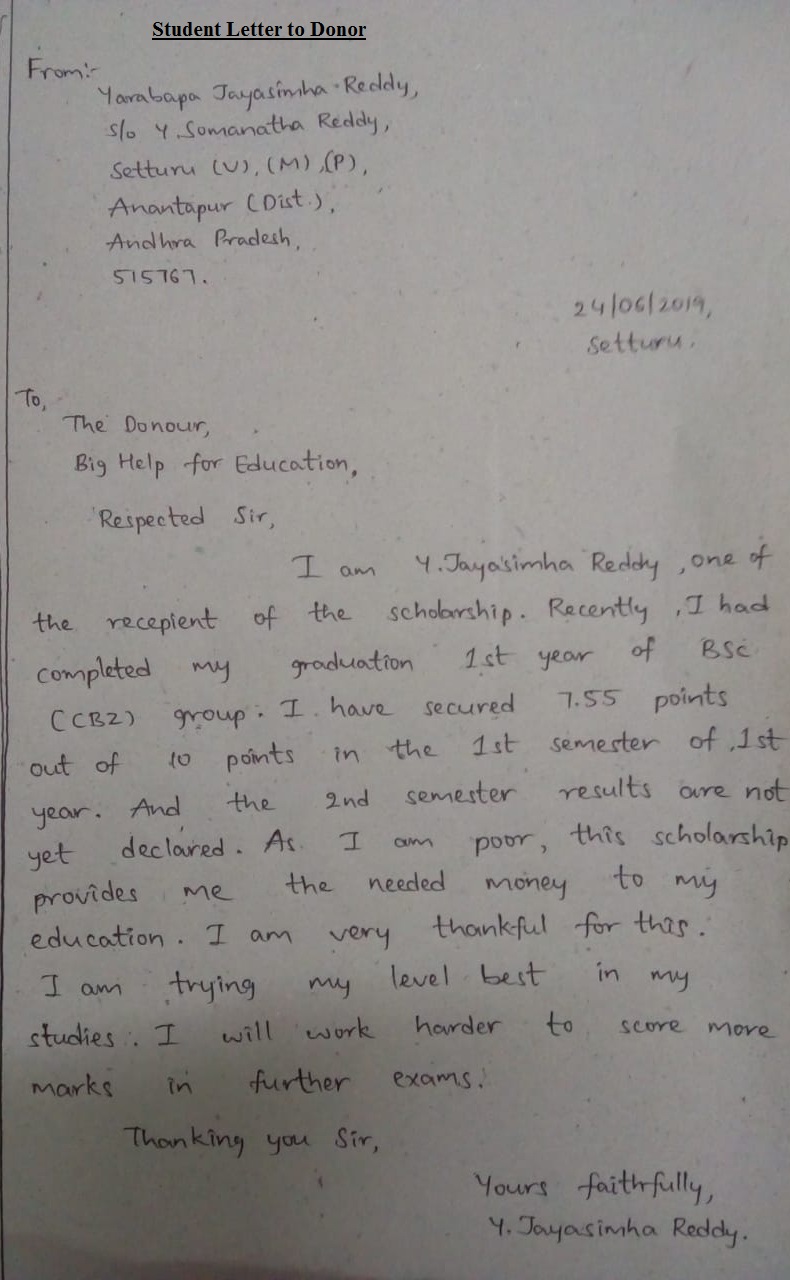 Student Letter to Donor
From:-
Yarabapa Jayasimha Reddy,
S/o Y. Somanatha Reddy,
Setturu (V), (M), (P),
Anantapur (Dist.),
Andhra Pradesh,
515767.
24/06/2019,
Setturu.
To,
The Donour,
Big Help for Education,
Respected Sir,
I am Y. Jayasimha Reddy, one of
the recepient of the scholarship. Recently, I had
completed my graduation 1st year of BSc
(CBZ) group. I have secured 7.55 points
out of 10 points in the 1st semester of 1st
year. And the 2nd semester results are not
yet declared. As I am poor, this scholarship
provides me the needed money to my
education. I am very thankful for this.
I am trying my level best in my
studies. I will work harder to score more
marks in further exams.
Thanking you Sir,
Yours faithfully,
Y. Jayasimha Reddy.